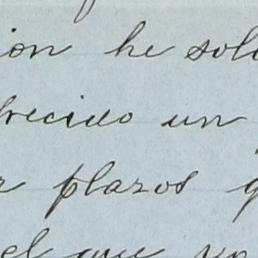 ion he sol
frecido un
r plazos q
el que yo